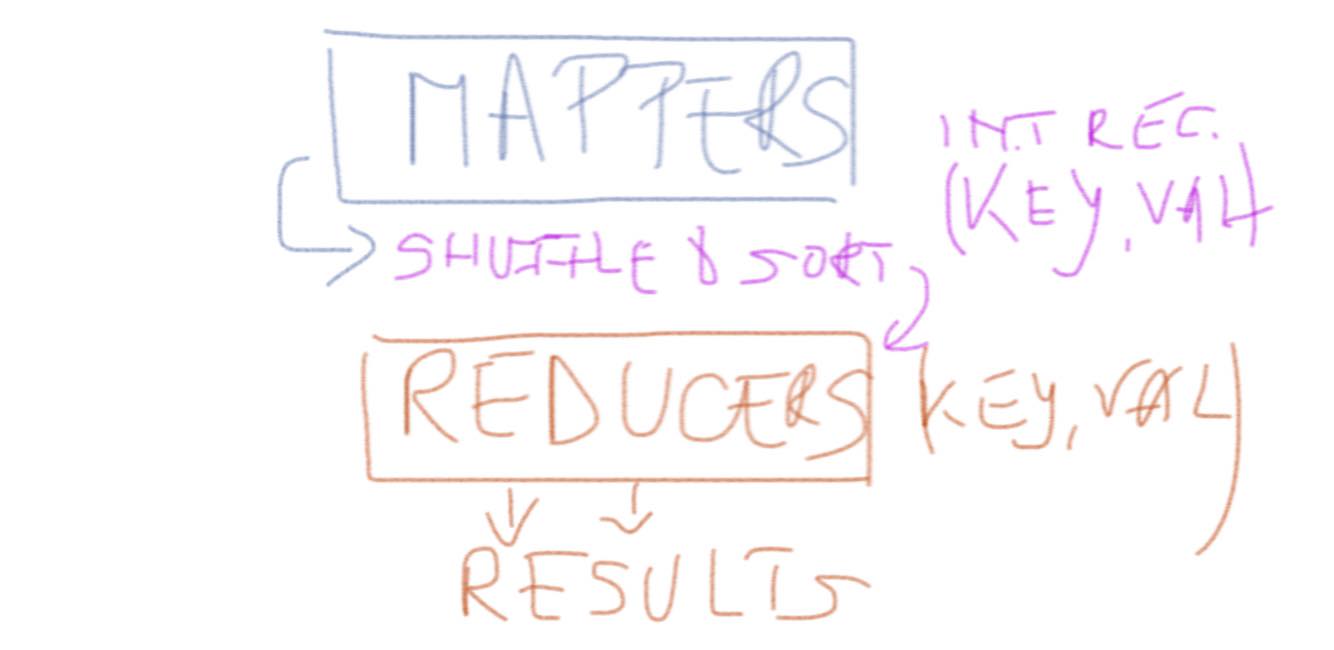 MAPPERS
INT REC.
(KEY, VAL)
SHUTTLE & SORT
REDUCERS
(KEY, VAL)
RESULTS